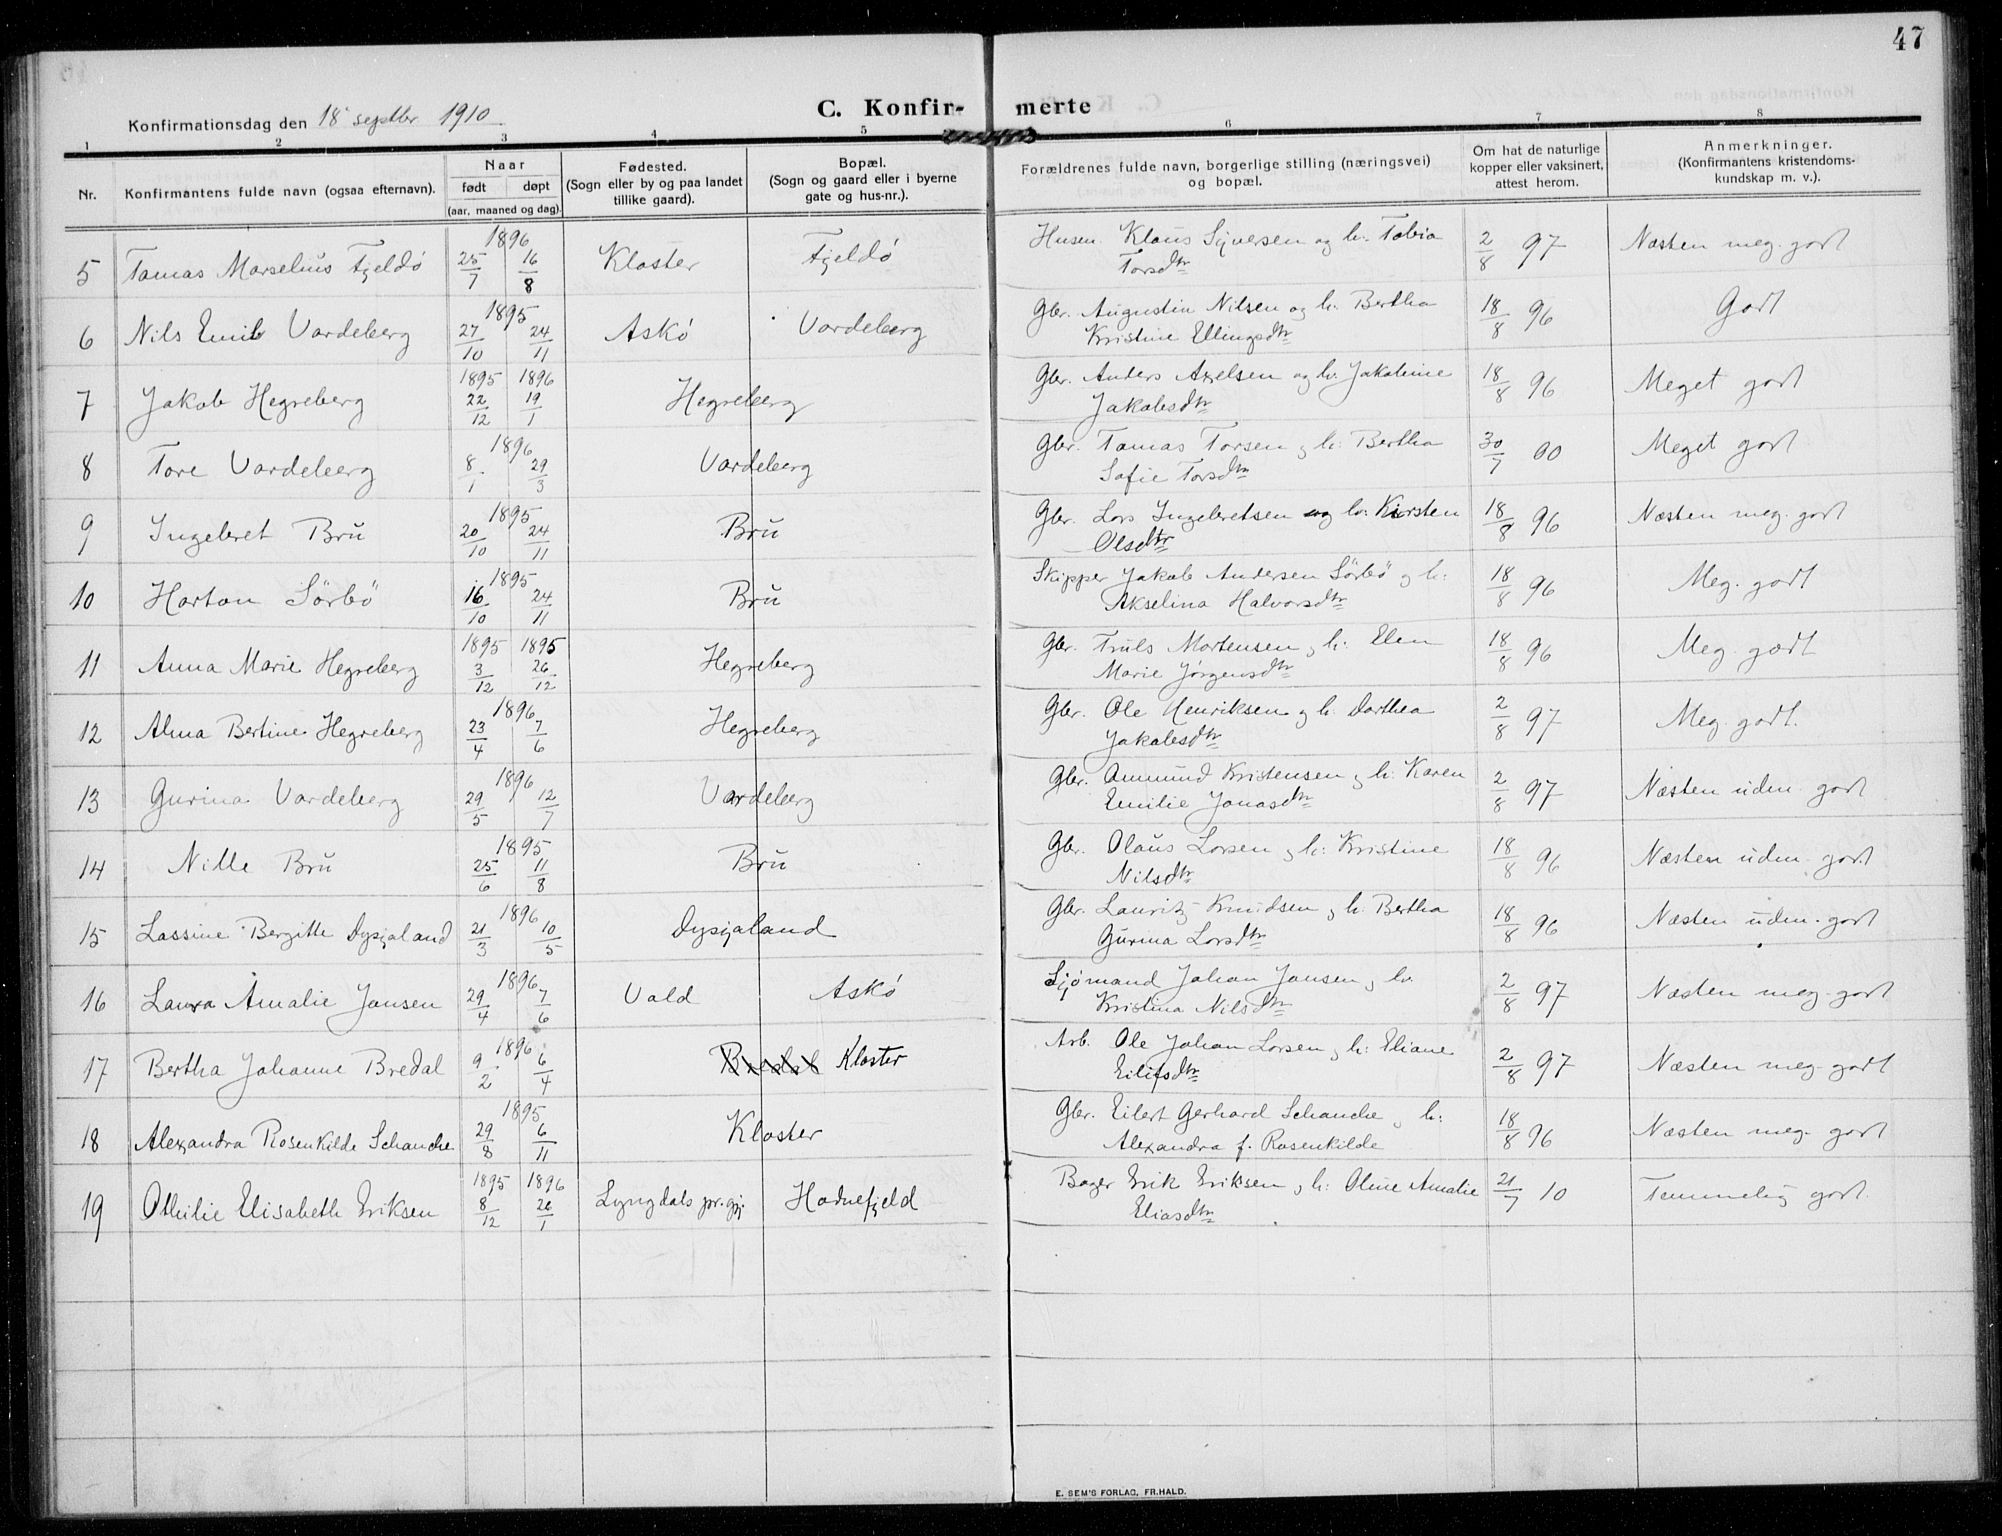 47
Konfirmationsdag den 18 septbr 1910
C. Konfir- merte
1 2 3 4 5 6 7 8
Nr. Konfirmantens fulde navn (ogsaa efternavn). Naar født døpt (aar, maaned og dag). Fødested. (Sogn eller by og paa landet tillike gaard). Bopæl. (Sogn og gaard eller i byerne gate og hus-nr.). Forældrenes fulde navn, borgerlige stilling (næringsvei) og bopæl. Om hat de naturlige kopper eller vaksinert, attest herom. Anmerkninger. (Konfirmantens kristendoms-kundskap m. v.).
5 Tomas Marselius Fjeldø 1896 25/7 16/8 Kloster Fjeldø Husm. Klaus Sjversen og h. Tobia Torsdtr 2/8 97 Næsten meg. godt
6 Nils Emil Vardeberg 1895 27/10 24/11 Askø Vardeberg Gbr. Augustin Nilsen og h. Bertha Kristine Ellingsdtr 18/8 96 Godt
7 Jakob Hegreberg 1895 22/12 1896 19/1 Hegreberg Gbr. Anders Axelsen og h. Jakobine Jakobsdtr 18/8 96 Meget godt
8 Tore Vardeberg 1896 8/1 29/3 Vardeberg Gbr. Tomas Torsen og h: Bertha Sofie Torsdtr 30/7 00 Meget godt
9 Ingebret Bru 1895 20/10 24/11 Bru Gbr. Lars Ingebretsen og h: Kirsten Olsdtr 18/8 96 Næsten meg. godt
10 Harton Sörbö 1895 16/10 24/11 Bru Skipper Jakob Andersen Sörbö og h: Akselina Halvorsdtr 18/8 96 Meg. godt
11 Anna Marie Hegreberg 1895 3/12 1895 26/12 Hegreberg Gbr. Truls Mortensen og h: Elen Marie Jørgensdtr 18/8 96 Meg. godt
12 Alma Bertine Hegreberg 1896 23/4 7/6 Hegreberg Gbr. Ole Henriksen og h. Dorthea Jakobsdtr 2/8 97 Meg. godt.
13 Gurina Vardeberg 1896 29/5 12/7 Vardeberg Gbr. Ommund Kristensen og h. Karen Emilie Jonasdtr 2/8 97 Næsten uden. godt
14 Nille Bru 1895 25/6 11/8 Bru Gbr. Olaus Larsen og h: Kristine Nilsdtr 18/8 96 Næsten uden. godt
15 Lassine Bergitte Dysjaland 1896 21/3 10/5 Dysjaland Gbr. Lauritz Knudsen og h. Bertha Gurina Larsdtr 18/8 96 Næsten uden. godt
16 Laura Amalie Jansen 1896 29/4 7/6 Vald Askø Sjømand Johan Jansen og h. Kristina Nilsdtr 2/8 97 Næsten meg. godt
17 Bertha Johanne Bredal 1896 9/2 6/4 Bredal Kloster Arb. Ole Johan Larsen og h: Eliane Eilifsdtr 2/8 97 Næsten meg. godt
18 Alexandra Rosenkilde Schanche 1895 29/8 6/11 Kloster Gbr. Eilert Gerhard Schanche og h: Alexandra f. Rosenkilde 18/8 96 Næsten meg. godt
19 Othilie Elisabeth Eriksen 1895 8/12 1896 26/1 Lyngdals pr.gj. Hodnefjeld Bager Erik Eriksen og h: Oline Amalie Eliasdtr 21/7 10 Temmelig godt.
E. SEM'S FORLAG, FR.HALD.